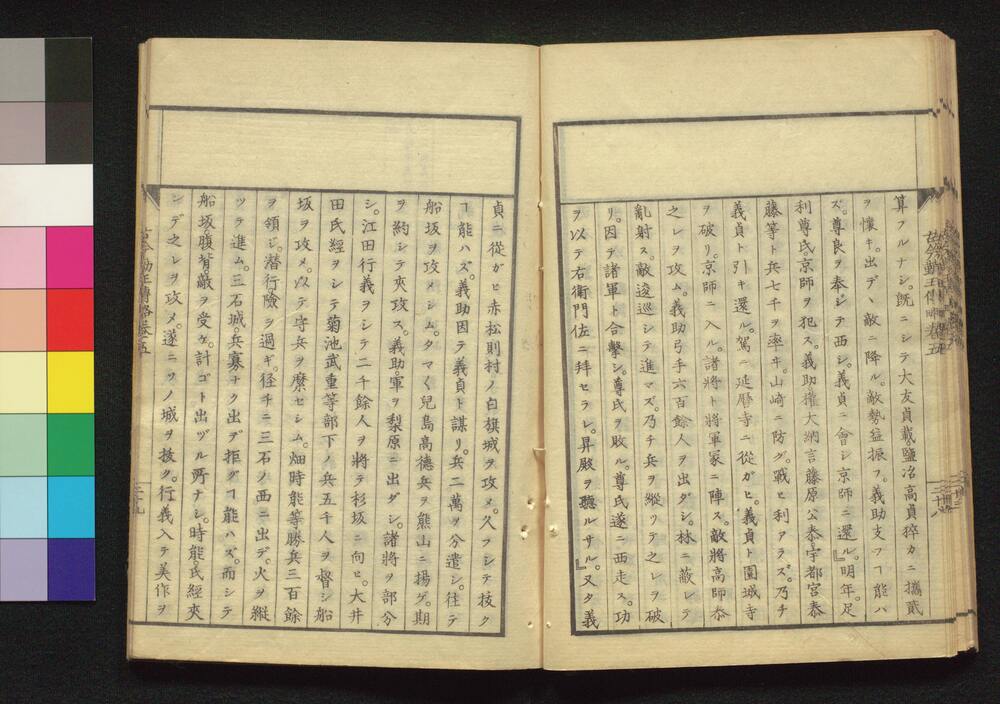 算フルナシ。既ニシテ大友貞載。鹽冶高貞猝カニ攜貳
ヲ懷キ。出デヽ敵ニ降ル。敵勢益振フ。義助支フヿ能ハ
ズ。尊良ヲ奉ジテ西シ。義貞ニ會シ京師ニ還ル。』明年。足
利尊氏。京師ヲ犯ス。義助。權大納言藤原公泰宇都宮泰
藤等ト兵七千ヲ率ヰ。山崎ニ防グ。戰ヒ利アラズ。乃チ
義貞ト引キ還ル。駕ニ延曆寺ニ從ガヒ。義貞ト園城寺
ヲ破リ。京師ニ入ル。諸將ト將軍冢ニ陣ス。敵將高師泰
之レヲ攻ム。義助弓手六百餘人ヲ出ダシ。林ニ蔽レテ
亂射ス。敵逡巡シテ進マズ。乃チ兵ヲ縱リテ之レヲ破
リ。因テ諸軍ト合擊シ。尊氏ヲ敗ル。尊氏遂ニ西走ス。功
ヲ以テ右衛門佐ニ拜セラレ。昇殿ヲ聽ルサル。』又タ義
貞ニ從ガヒ赤松則村ノ白旗城ヲ攻メ。久フシテ拔ク
ヿ能ハズ。義助因テ義貞ト謀リ。兵二萬ヲ分遣シ。往テ
船坂ヲ攻メシム。タマ〱兒島高德兵ヲ熊山ニ揚ゲ。期
ヲ約シテ夾攻ス。義助軍ヲ梨原ニ出ダシ。諸將ヲ部分
シ。江田行義ヲシテ二千餘人ヲ將テ杉坂ニ向ヒ。大井
田氏經ヲシテ菊池武重等部下ノ兵五千人ヲ督シ船
坂ヲ攻メ。以テ守兵ヲ縻セシム。畑時能等勝兵三百餘
ヲ領シ。潜行險ヲ過ギ。径チニ三石ノ西ニ出デ。火ヲ縱
ツテ進ム。三石城兵寡ナク出デ拒グヿ能ハズ。而シテ
船坂。腹背敵ヲ受ケ。計ゴト出ヅル所ナシ。時能。氏經夾
ンデ之レヲ攻メ。遂ニ二ツノ城ヲ拔ク。行義入テ美作ヲ